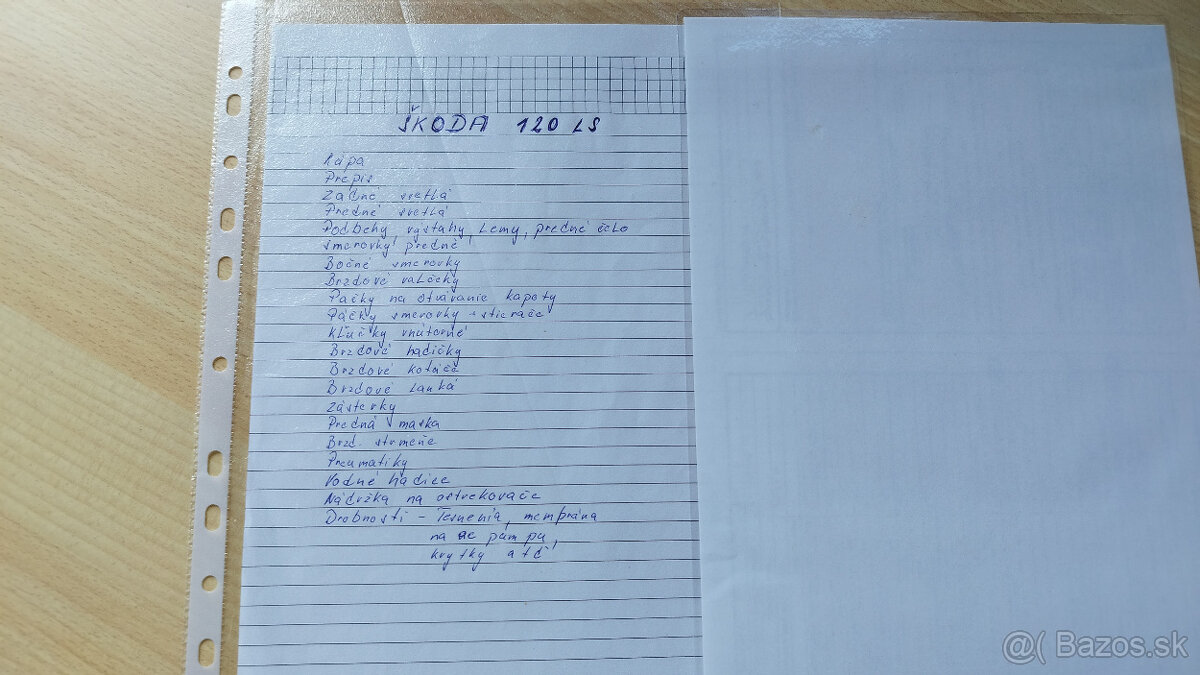 ŠKODA 120 LS
Kápa
Prepis
Zadné svetlá
Predné svetlá
Podbehy, výstahy, Lemy, predné čelo
smerovky predné
Bočné smerovky
Brzdové valčeky
Pačky na otváranie kapoty
Páčky smerovky - stierače
Kľučky vnútorné
Brzdové hadičky
Brzdové kotúče
Brzdové Lanká
Zásterky
Predná maska
Brzd. strmeňe
Pneumatiky
Vodné hadice
Nádržka na ostrekovače
Drobnosti - Tesnenia, memprána
na ac pumpu,
krytky atď
@( Bazos.sk